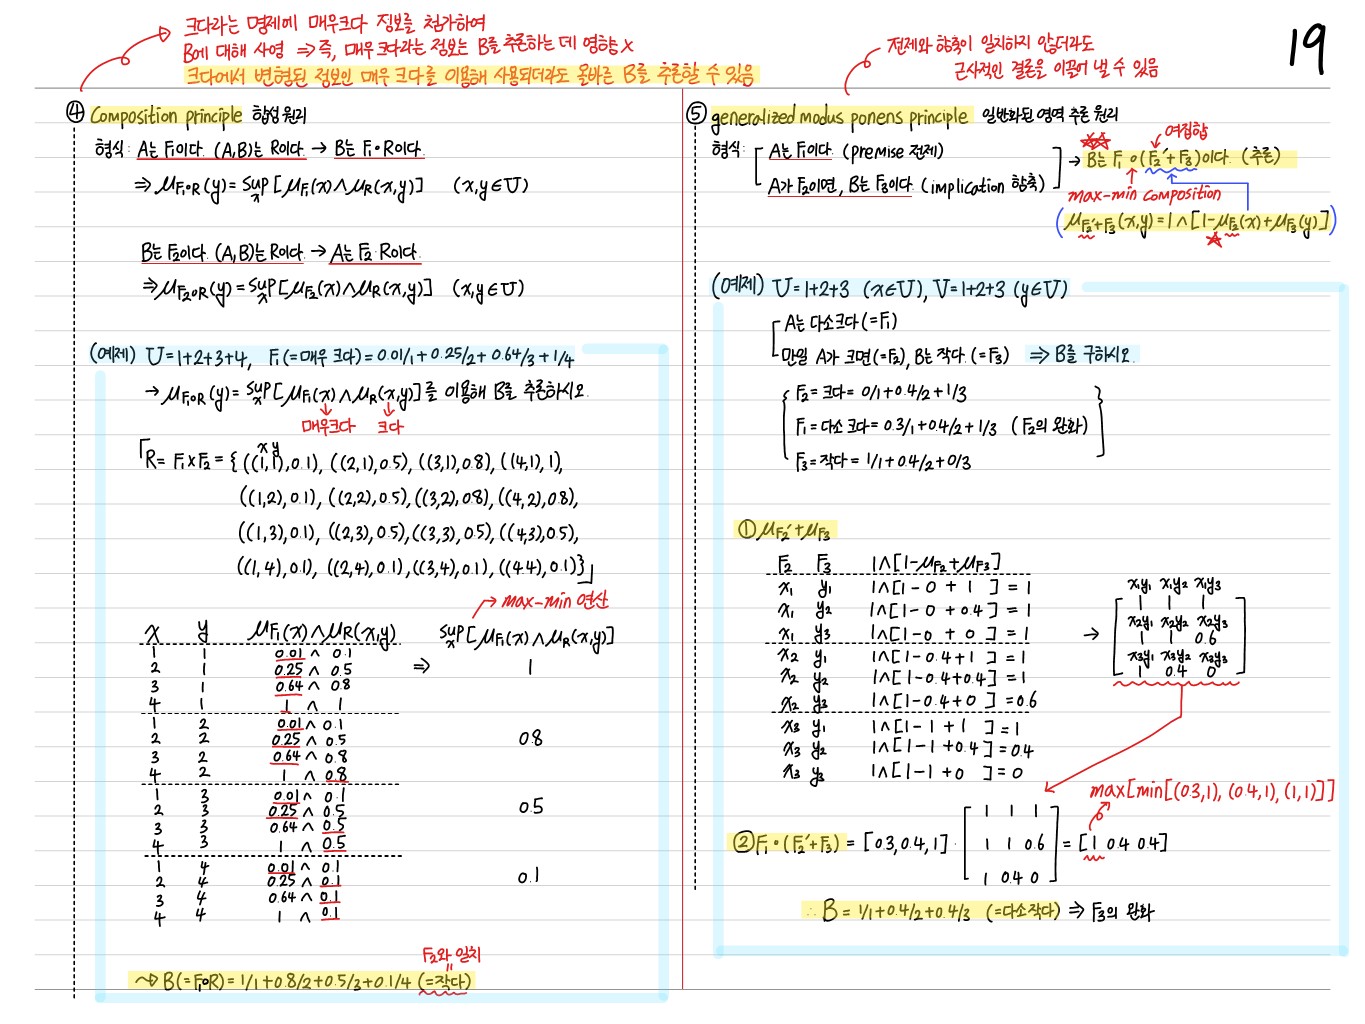 19
크다라는 명제에 매우크다 정보를 첨가하여
B에 대해 사영 ⇒ 즉, 매우 크다라는 정보는 B를 추론하는 데 영향 X
크다에서 변형된 정보인 매우 크다를 이용해 사용되더라도 올바른 B를 추론할 수 있음
④ Composition principle 합성 원리
형식: A는 F₁이다. (A,B)는 R이다 → B는 F₁∘R이다.
⇒ μF₁∘R(y) = sup x [μF₁(x)∧μR(x,y)] (x,y∈U)
B는 F₂이다. (A,B)는 R이다 → A는 F₂·R이다.
⇒ μF₂∘R(y) = sup x [μF₂(x)∧μR(x,y)] (x,y∈U)
(예제) U=1+2+3+4, F₁(=매우 크다) = 0.01/1+0.25/2+0.64/3+1/4
→ μF₁∘R(y) = sup x [μF₁(x)∧μR(x,y)]를 이용해 B를 추론하시오.
매우크다 크다
x y
R = F₁×F₂ = { ((1,1),0.1), ((2,1),0.5), ((3,1),0.8), ((4,1),1),
((1,2),0.1), ((2,2),0.5), ((3,2),0.8), ((4,2),0.8),
((1,3),0.1), ((2,3),0.5), ((3,3),0.5), ((4,3),0.5),
((1,4),0.1), ((2,4),0.1), ((3,4),0.1), ((4,4),0.1)}
→ max-min 연산
x y μF₁(x)∧μR(x,y) sup x [μF₁(x)∧μR(x,y)]
1 1 0.01 ∧ 0.1
2 1 0.25 ∧ 0.5 ⇒ 1
3 1 0.64 ∧ 0.8
4 1 1 ∧ 1
1 2 0.01 ∧ 0.1
2 2 0.25 ∧ 0.5 0.8
3 2 0.64 ∧ 0.8
4 2 1 ∧ 0.8
1 3 0.01 ∧ 0.1
2 3 0.25 ∧ 0.5 0.5
3 3 0.64 ∧ 0.5
4 3 1 ∧ 0.5
1 4 0.01 ∧ 0.1
2 4 0.25 ∧ 0.1 0.1
3 4 0.64 ∧ 0.1
4 4 1 ∧ 0.1
F₂와 일치
B(=F₁∘R) = 1/1+0.8/2+0.5/3+0.1/4 (=작다)
전제와 함축이 일치하지 않더라도
근사적인 결론을 이끌어 낼 수 있음
⑤ generalized modus ponens principle 일반화된 영역 추론 원리
여집합
형식: A는 F₁이다. (premise 전제) → B는 F₁∘(F₂′+F₃)이다. (추론)
A가 F₂이면, B는 F₃이다. (implication 함축)
max-min composition
(μF₂′+F₃(x,y) = 1∧[1-μF₂(x)+μF₃(y)])
(예제) U=1+2+3 (x∈U), V=1+2+3 (y∈U)
A는 다소크다(=F₁)
만일 A가 크면(=F₂), B는 작다(=F₃) ⇒ B를 구하시오.
F₂=크다= 0/1+0.4/2+1/3
F₁=다소 크다= 0.3/1+0.4/2+1/3 (F₂의 완화)
F₃=작다= 1/1+0.4/2+0/3
① μF₂′+μF₃
F₂ F₃ 1∧[1-μF₂+μF₃]
x₁ y₁ 1∧[1-0+1] = 1
x₁ y₂ 1∧[1-0+0.4] = 1
x₁ y₃ 1∧[1-0+0] = 1
x₂ y₁ 1∧[1-0.4+1] = 1
x₂ y₂ 1∧[1-0.4+0.4] = 1
x₂ y₃ 1∧[1-0.4+0] = 0.6
x₃ y₁ 1∧[1-1+1] = 1
x₃ y₂ 1∧[1-1+0.4] = 0.4
x₃ y₃ 1∧[1-1+0] = 0
→
x₁y₁ x₁y₂ x₁y₃
1 1 1
x₂y₁ x₂y₂ x₂y₃
1 1 0.6
x₃y₁ x₃y₂ x₃y₃
1 0.4 0
max[min[(0.3,1),(0.4,1),(1,1)]]
1 1 1
② F₁∘(F₂′+F₃) = [0.3,0.4,1]· 1 1 0.6 = [1 0.4 0.4]
1 0.4 0
∴ B = 1/1+0.4/2+0.4/3 (=다소작다) ⇒ F₃의 완화